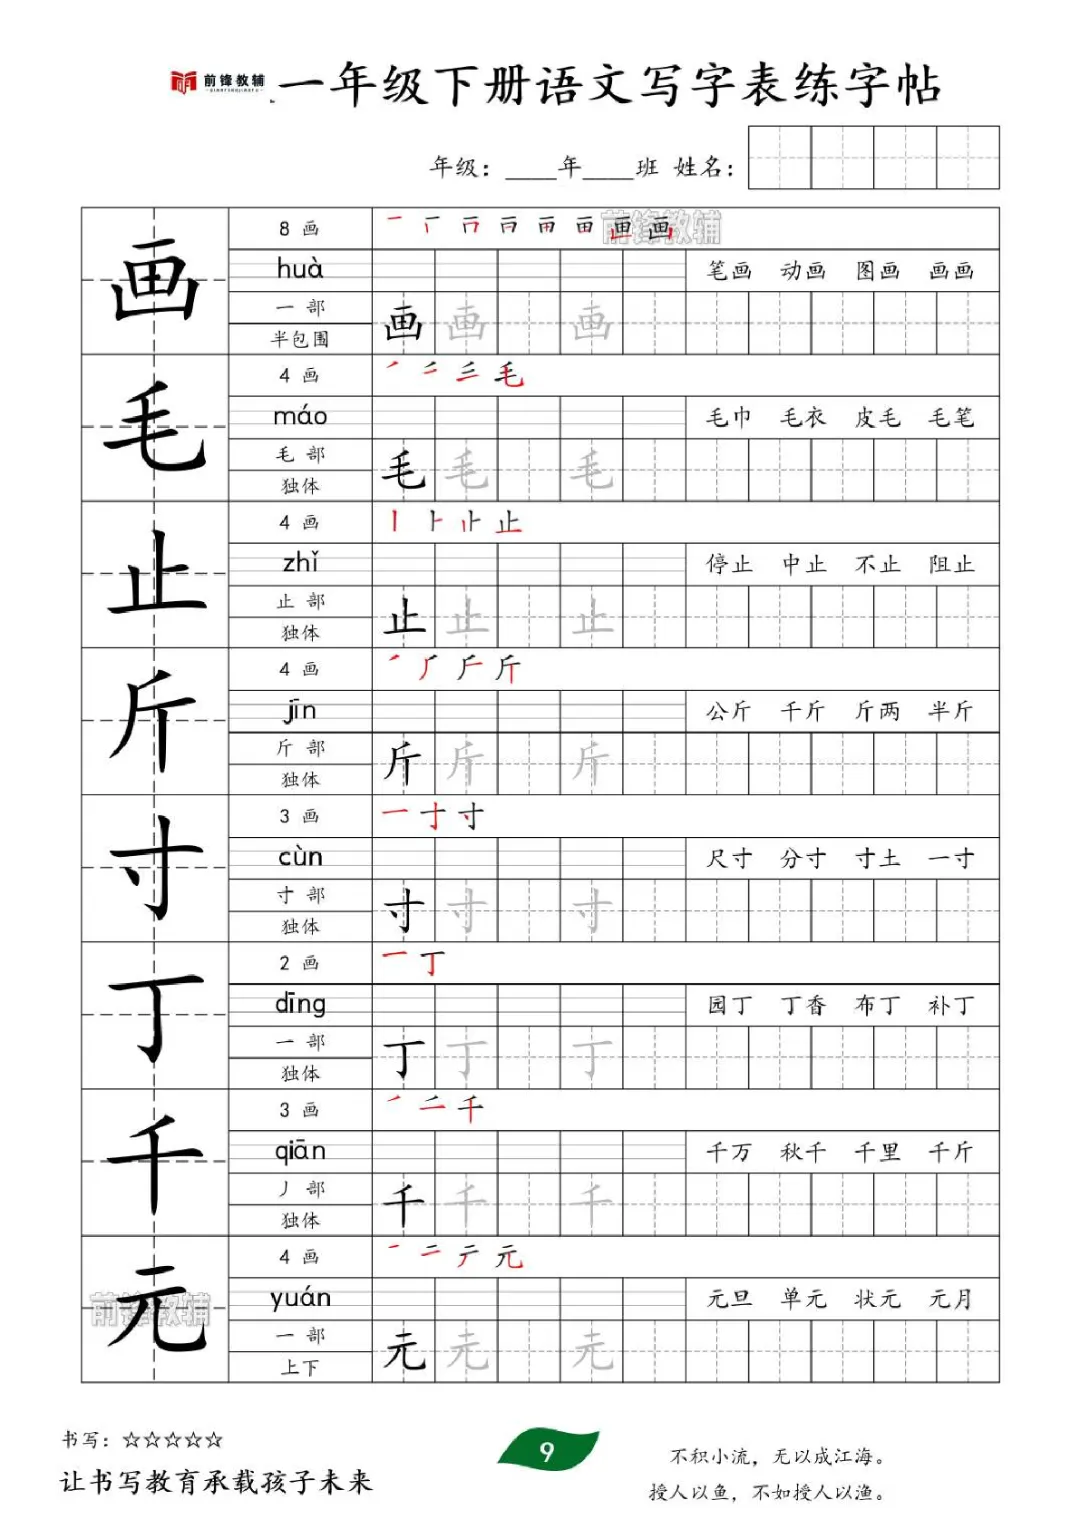 前锋教辅
QIANFENGJIAOFU
一年级下册语文写字表练字帖
年级：____年____班 姓名：
画
8 画
前锋教辅
huà
笔画 动画 图画 画画
一 部
半包围
画 画 画
毛
4 画
毛
máo
毛巾 毛衣 皮毛 毛笔
毛 部
独体
毛 毛 毛
止
4 画
止
zhǐ
停止 中止 不止 阻止
止 部
独体
止 止 止
斤
4 画
斤
jīn
公斤 千斤 斤两 半斤
斤 部
独体
斤 斤 斤
寸
3 画
一 寸 寸
cùn
尺寸 分寸 寸土 一寸
寸 部
独体
寸 寸 寸
丁
2 画
一 丁
dīng
园丁 丁香 布丁 补丁
一 部
独体
丁 丁 丁
千
3 画
千
qiān
千万 秋千 千里 千斤
丿 部
独体
千 千 千
元
前锋教辅
4 画
一 二 元
yuán
元旦 单元 状元 元月
一 部
上下
元 元 元
书写：☆☆☆☆☆
让书写教育承载孩子未来
9
不积小流，无以成江海。
授人以鱼，不如授人以渔。